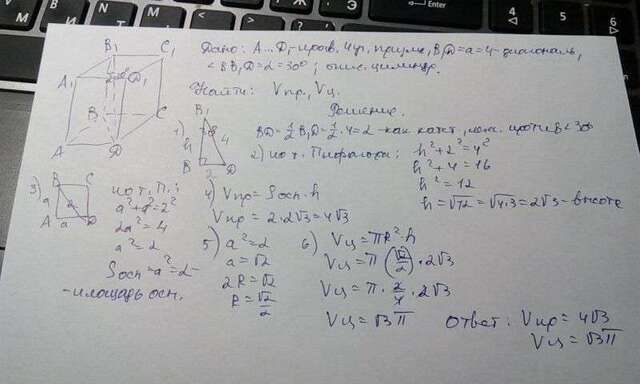 Дано: A...D₁-прав. 4уг. призма, B₁D=a=4-диагональ,
<BB₁D=α=30°; опис. цилиндр.
Найти: Vпр., Vц.
Решение.
B₁ C₁
A₁ D₁
B C
A D
1) B₁
h 4
B 2 D
BD=1/2 B₁D=1/2·4=2 - как катет, леж. против <30°
2) по т. Пифагора: h²+2²=4²
h²+4=16
h²=12
h=√12=√4·3=2√3-высота
3) B C
a 2
A a D
по т. П.:
a²+a²=2²
2a²=4
a²=2
Sосн=a²=2-
-площадь осн.
4) Vпр=Sосн·h
Vпр=2·2√3=4√3
5) a²=2
a=√2
2R=√2
R=√2/2
6) Vц=πR²·h
Vц=π(√2/2)·2√3
Vц=π·2/4·2√3
Vц=√3π
Ответ: Vпр=4√3
Vц=√3π
Enter
4
5
6